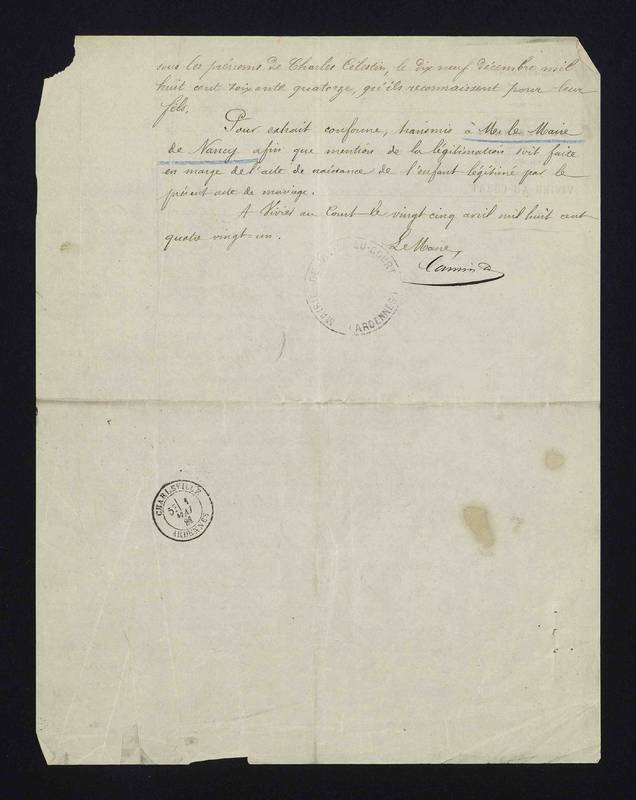 sous les prénoms de Charles Célestin, le dix neuf décembre mil
huit cent soixante quatorze, qu'ils reconnaissent pour leur
fils.
Pour extrait conforme, transmis à Mr le Maire
de Nancy afin que mention de la légitimation soit faite
en marge de l'acte de naissance de l'enfant légitimé par le
présent acte de mariage.
A Vivier au Court le vingt cinq avril mil huit cent
quatre vingt-un.
Le Maire,
MAIRIE DE AU-COURT
(ARDENNES)
CHARLEVILLE
5E
1
MAI
81
ARDENNES